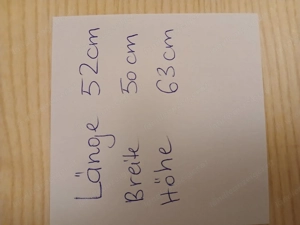 Länge 52cm
Breite 50cm
Höhe 63cm